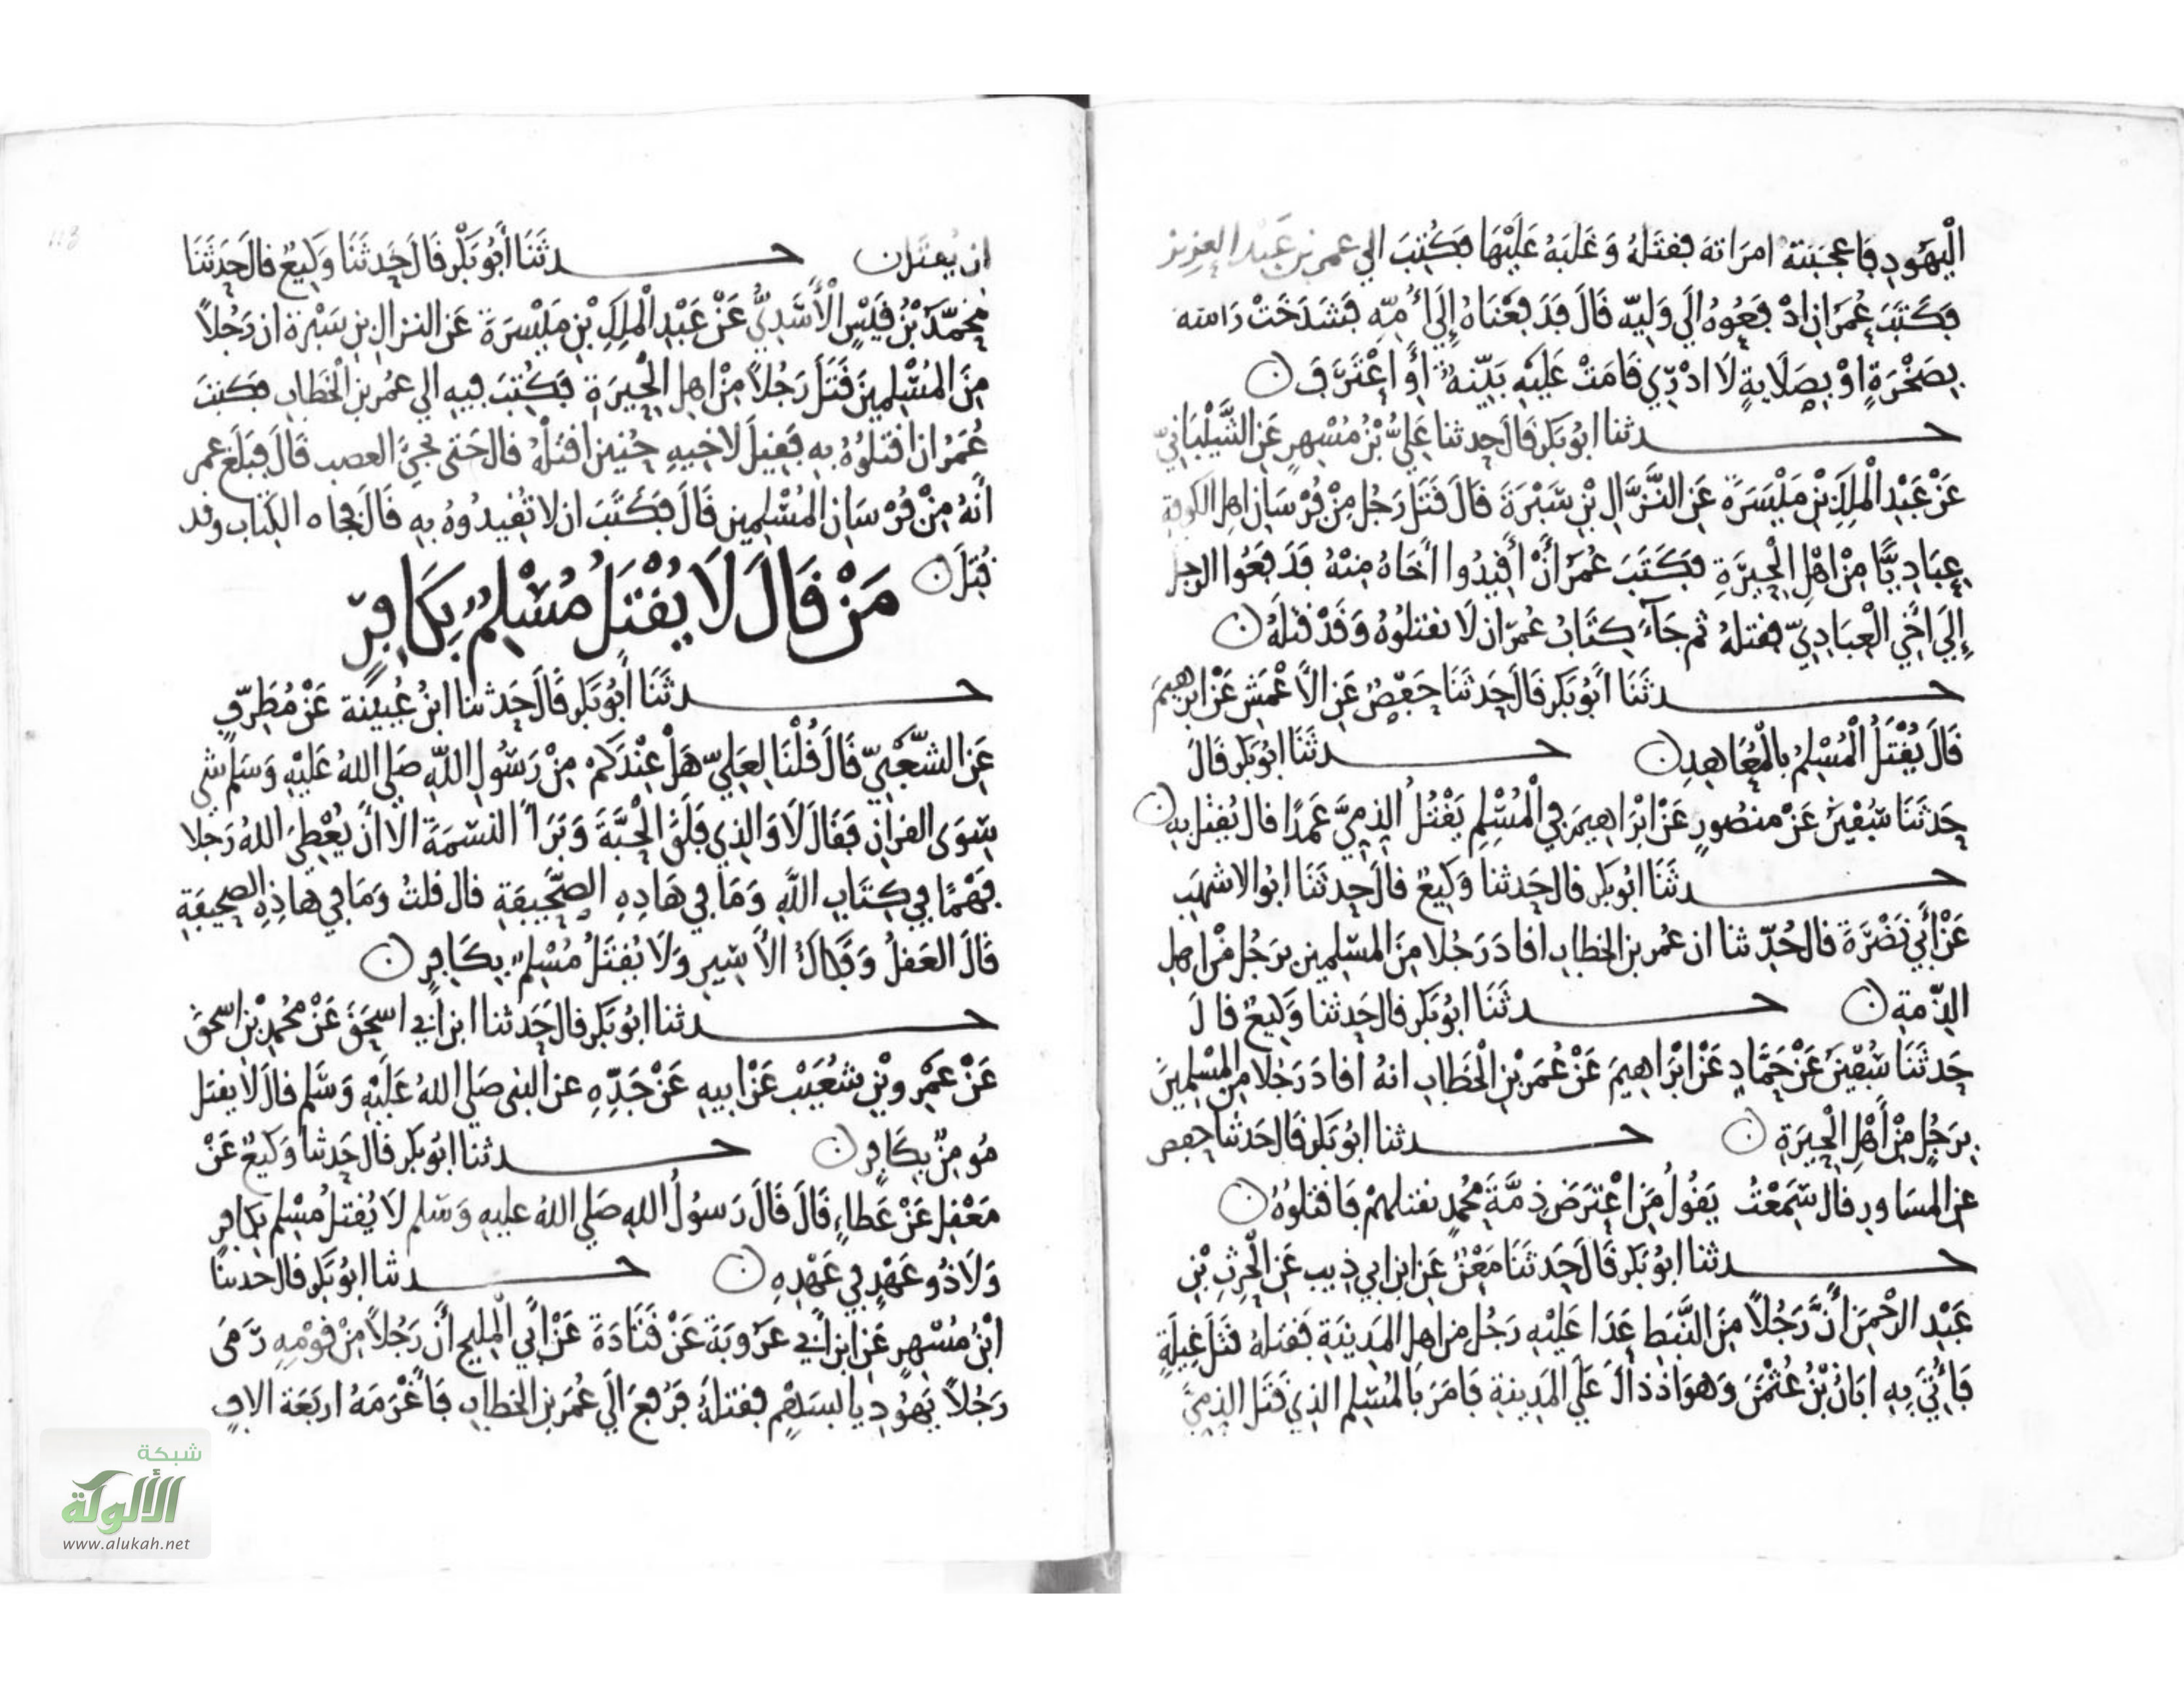 الْيَهُودِ فَاعجَبَتهُ امرَاتهَ فقتَلهُ وَغَلَبهُ عَلَيْهَا فكُتِبَ الي عمر بن عَبْد العزيز
فكَتَبَ عُمَر ان ادْفعُوهُ الَي وَلِيّه قَالَ فَدَفعْنَاهُ إِلَي أُمّه فشَدَخَتْ رَاسَهُ
بِصَخْرَةٍ اوْ بِصَلَايةٍ لَا ادْرِي قَامَتْ عَلَيْهِ بَيِّنهٌ أَو اعْتَرَفَ ن
حدثنا ابُو بَكر قَالَ حدثنا عَلِيُّ بْنُ مُسْهِرٍ عَن الشَّيْبَانِيّ
عَنْ عَبْدِ الْمَلِكِ بْنِ مَيْسَرَةَ عَن النَّزَّالِ بْنِ سَبْرَةَ قَالَ قَتَلَ رَجُل مِنْ فُرْسَانِ اهل الكوفة
عِبَادِيًّا مِنْ اهْلِ الْحِيرَةِ فكَتَبَ عُمَرُ أَنْ أَقِيدُوا أَخَاهُ مِنْهُ فَدَفعُوا الرجل
إِلَي اخَي الْعِبَادِيّ فقتلهُ ثم جَآءَ كِتَابُ عُمرَ ان لَا تقتلُوهُ وَقَدْ قتَلَهُ ن
حدثَنَا أَبُو بَكر قَالَ حَدثَنَا حَفْصٌ عَن الأعْمَش عَنْ ابرهِيمَ
قَالَ يُقْتَلُ الْمُسْلِمُ بالْمُعَاهِدِ ن حدثَنَا ابُو بَكر قَالَ
حَدثَنَا سُفْيَن عَنْ منصُورٍ عَنْ ابْرَاهِيمَ في الْمُسْلِمِ يَقْتُلُ الذِمِيَّ عَمدًا قال يُقتل بِهِ ن
حدثَنَا ابُو بَكر قال حَدثنا وَكِيعٌ قالَ حدثَنَا ابُو الاشهَب
عَنْ أَبي نَضْرَةَ قال حُدِّثنا ان عُمر بن الخطابِ اقادَ رَجُلا مِنَ المسْلمِين برَجُل مْن اهل
الذّمةِ ن حدثَنَا ابُو بَكر قال حَدثنا وَكِيعٌ قالَ
حَدثَنَا سُفْيَن عَنْ حَمَّادٍ عَنْ ابْرَاهِيمَ عَنْ عُمَر بْنِ الْخَطابِ انهُ اقادَ رَجُلا مِن الْمُسْلِمِينَ
بِرَجُلٍ مِنْ أَهْلِ الْحِيرَةِ ن حدثنا ابُو بَكر قَال حَدثنا حفص
عن المسَاور قال سَمِعْتُ يَقُولُ مَن اعْتَرَضَ ذمَّةَ مُحَمدٍ بقتلهمْ فَاقتلُوهُ ن
حدثنا ابُو بَكر قَالَ حَدثَنَا مَعْنٌ عَن ابن ابي ذيب عَن الْحَرِثِ بْن
عَبْدِ الرَّحْمَن أَنَّ رَجُلاً مِنَ النَّبَط عَدَا عَلَيْهِ رَجُل من اهل المَدِينَةِ فقتله قتلَ غِيلَةٍ
فَأُتِيَ بِهِ ابَانُ بْنُ عُثْمَنَ وَهوَ اذ ذاكَ عَلَي المَدِينةِ فامَرَ بالمُسْلم الذِي قتَلَ الذِمِيَّ
ان يُقتَل ن حدثَنَا أَبُو بَكْر قَالَ حَدثَنَا وَكِيعٌ قالَ حَدثَنَا
مُحَمَّدُ بْنُ قَيْسٍ الْأَسَدِيُّ عَنْ عَبْدِ الْمَلِكِ بْنِ مَيْسَرَةَ عَن النزالِ بن سَبْرةَ ان رَجُلاً
مِنَ المُسْلِمِينَ قَتَلَ رَجُلاً مِنْ اهل الْحِيرَةِ فكُتِبَ فيه الي عمُر بن الخَطابِ فكتبَ
عُمَرُ ان اقتلوُهُ بِهِ فقِيلَ لاخِيهِ حُنين اقتلْهُ قال حَتى يَجئَ الغضب قَالَ فبَلَغ عمر
أَنهُ مِنْ فُرْسَانِ المُسْلِمِين قَالَ فكَتَبَ ان لا تُقِيدُوهُ بِهِ قَالَ فجاه الكِتاب وقد
قُتِلَ ن مَنْ قَالَ لَا يُقْتَلُ مُسْلِمٌ بِكَافِرٍ
حدثَنَا أَبُو بَكر قَالَ حَدثنا ابنُ عُيينة عَنْ مُطَرِّفٍ
عَن الشعْبِيّ قَالَ قُلْنَا لِعَلِيّ هَلْ عِنْدَكم مِنْ رَسُولِ اللهِ صَلي اللهُ عَلَيْهِ وَسَلم شي
سِوَى القران فقَالَ لَا وَالذِي فَلَقَ الْحَبَّةَ وَبَرَأَ النسَمَةَ الا أَنْ يُعْطِيَ اللهُ رَجُلا
فهْمًا فِي كِتَابِ اللهِ وَمَا في هَاذِهِ الصَّحِيفَةِ قال قلتُ وَمَا فِي هاذِهِ الصحِيفَةِ
قَالَ العَقلُ وَفَكاكُ الاسَيرِ وَلَا يُقتَلُ مُسْلِمٌ بِكَافِرٍ ن
حدثنا ابُو بَكر قال حَدثنا ابن أَبي اسحَقَ عَنْ مُحَمدِ بْن اسحقَ
عَنْ عَمْرو بْن شعُيَبْ عَنْ ابيهِ عَنْ جَدّه عن النبي صَلي اللهُ عَلَيْهِ وَسَلم قالَ لَا يقتل
مُومِنٌ بِكَافر ن حدثنا ابُو بَكر قال حَدثنا وَكيعٌ عَنْ
مَعْقِلٍ عَنْ عَطاءٍ قَالَ قَالَ رَسوُلُ اللهِ صَلي اللهُ عليهِ وَسَلم لَا يُقتلُ مُسْلِم بِكافِر
وَلَا ذُو عَهْدٍ فِي عَهْدِهِ ن حدثنا ابُو بَكر قال حدثنا
ابْنُ مُسْهِرٍ عَن ابن أَبي عَرُوبَةَ عَنْ قَتَادَةَ عَنْ أَبي الْمَلِيحِ أَنَّ رَجُلاً مِنْ قومِهِ رَمَى
رَجُلاً يَهُودِيا بسَهْمٍ فقتلَهُ فرُفِعَ الَي عُمَرَ بن الخطابِ فَأَغْرَمَهُ اربَعَةَ الافٍ
شبكة
الألوكة
www.alukah.net